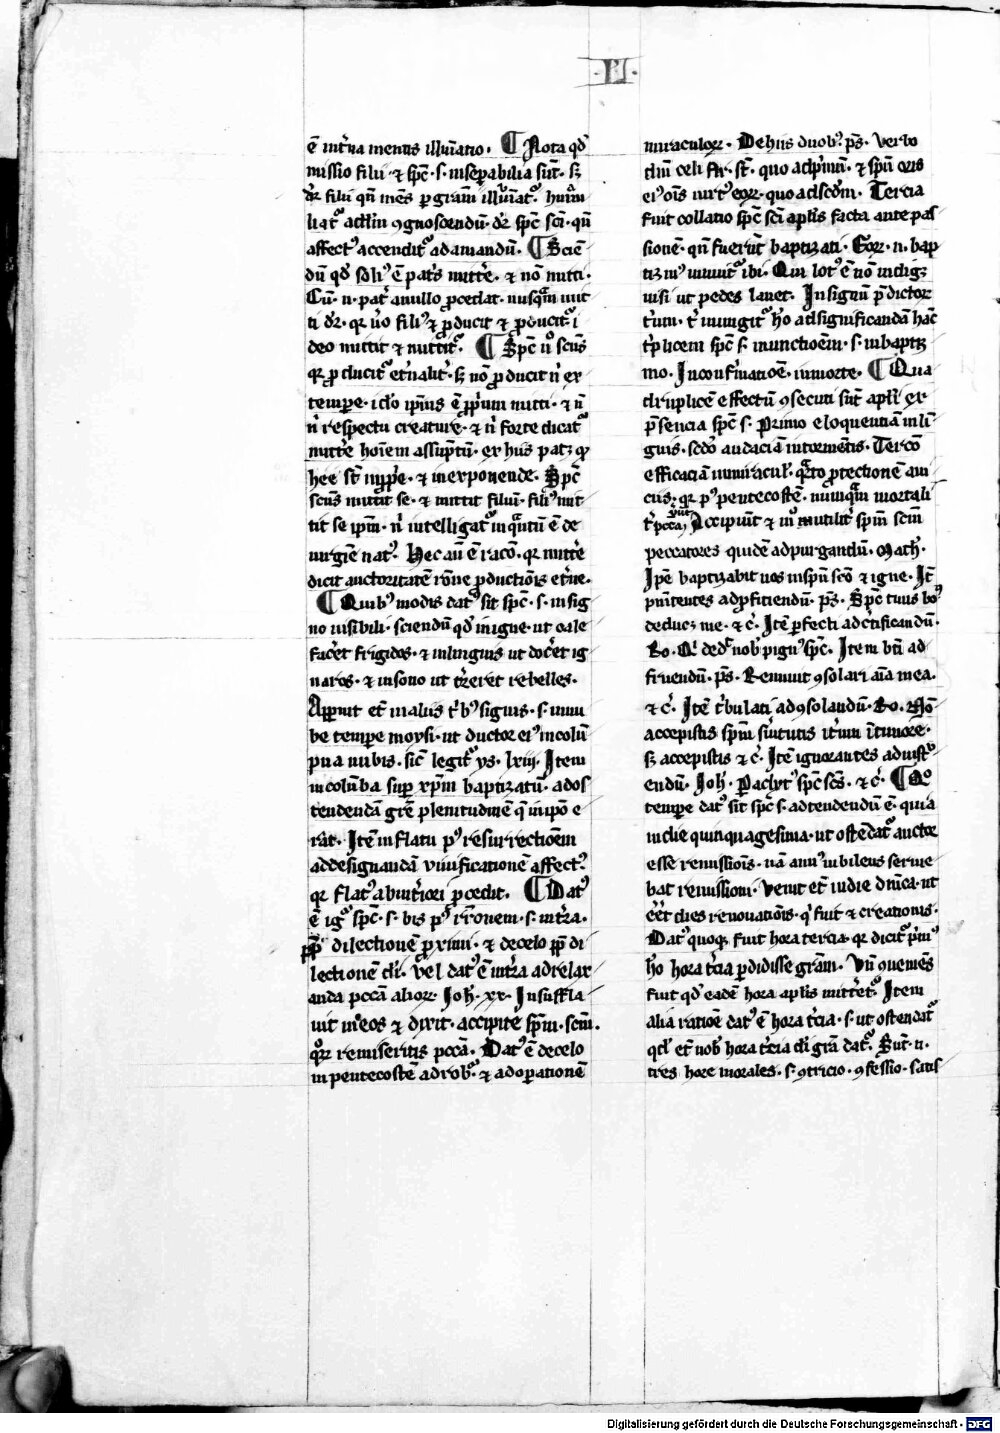 ·LI·
ē int̄na mentis illuīatio. ¶ Nota qd̕
missio filii ⁊ sp̄c · s · inseꝑabilia sūt · sꝫ
dr̄ filii qn̄ mēs ꝑ gram̄ illuīat᷑ · hūm
liat᷑ ad ꝯgnoscendū · dr̄ sp̄c sci · qn̄
affect᷒ accendit᷑ ad amandū · ¶ Sciē
dū qd̕ soli᷒ ē pat̄s mitt̄e · ⁊ nō mitti ·
Cū · n · pat̄ a nullo ꝓcedat · nusq̄m mit
ti dr̄ · qr u̅o fili᷒ ⁊ ꝓducit ⁊ ꝓducit᷑ i
deo mittit ⁊ mittit᷑ · ¶ Sp̄c u̅o scūs
qr ꝓducit᷑ et̄nalit̄ · sꝫ nō ꝓducit n̄ ex
tempore · iclo ip̄ius ē ꝓp̄um mitti · ⁊ n̄
n̄ respectu creature · ⁊ n̄ forte dicat᷑
mitt̄e hoīem assūptū · ex hiis patꝫ ꝙ
hee st̄ imp̄p̄e · ⁊ in exponende · Sp̄c
scūs mittit se · ⁊ mittit filiū · fili᷒ mit
tit se ip̄m · n̄ intelligat᷑ in q̄ntū ē de
uirgiē nat᷒ · Hec aū ē racō · qr mitt̄e
dicit auctoritatē rōne ꝓductiōis et̄ne ·
¶ Quib᷒ modis dat᷒ sit sp̄c · s · in sig
no uisibili · sciendū qd̕ in igne · ut cale
fac̄et frigidos · ⁊ in linguis ut doc̄et ig
naros · ⁊ in sono ut t̄reret rebelles ·
Apparuit et̄ in aliis t̄b᷒ signis · s · in nu
be tempore moysi · ut ductor ei᷒ in colū
pna nubis · sic̄ legit᷑ ys · lxiii · Item
in colūba suꝑ xp̄m baptizatū · ad os
tendendā gr̄e plenitudinē q̄ in ip̄o e
rat · Itē in flatu p᷒ resurrectioēm
ad designandā uiuificationē affect᷒ ·
qr flat᷒ ab int̄iori ꝓcedit · ¶ Dat᷒
ē ig᷑ sp̄c · s · bis p᷒ · s · in t̄ra ·
ꝓp̄ dilectionē ꝓximi · ⁊ de celo ꝓp̄ di
lectionē di̅ · uel dat᷒ ē in t̄ra ad relax
anda pccā alior̄ · Joh̄ · xx · Insuffla
uit in eos ⁊ dixit · accipite sp̄m · scm̄ ·
qr̄ remiseritis pccā · Dat᷒ ē de celo
in pentecostē ad rob᷑ · ⁊ ad oꝑationē
miraculor̄ · De hiis duob᷒ · p̄s · Verbo
dn̄i celi fir · st̄ · quo ad p̄mū · ⁊ spū oris
ei᷒ oīs uirt᷒ eor̄ · quo ad scd̄m · Tercia
fuit collatio sp̄c sci̅ apl̄is facta ante pas
sionē · qn̄ fuerūt baptizati · Eor̄ · n · bap
tizm᷒ innuit᷑ ibi · Qui lot᷒ ē nō indigꝫ
nisi ut pedes lauet · In signū p̄dictor̄
t̄um · t̄ inungit᷑ hō ad significandā hāc
t̄plicem sp̄c s · inunctioēm · s · in baptiz
mo · In confirmatioē · in morte · ¶ Qua
druplicē effectū ꝯsecuti sūt apl̄i ex
p̄sencia sp̄c s · Primo eloquentiā in li̅
guis · scd̄o audaciā in tormētis · Tercō
efficaciā in miracul̄ · q̄rto ꝓtectionē a ui
ciis · qr p᷒ pentecostē · nunq̄m mortali
t̄ pccau̅t Accipiūt ⁊ in᷒ mutilit̄ sp̄m scm̄
peccatores quidē ad purgandū · Math̄ ·
Ip̄e baptizabit uos in spū scō ⁊ igne · It̄
pn̄itentes ad ꝓficiendū · p̄s · Sp̄c tuus bo᷒
deducꝫ me · ⁊ c̄ · Itē ꝑfecti ad c̄tificandū ·
Ro · Qi dedᷣ nob̄ pign᷒ sp̄c · Item bt̄i ad
fruendū · p̄s · Rennuit ꝯsolari aīa mea ·
⁊ c̄ · Itē t̄bulati ad ꝯsolandū · Ro · Nō
accepistis sp̄m s̄uitutis it̄um in timore ·
sꝫ accepistis ⁊ c̄ · Itē ignorantes ad inst᷑
endū · Joh̄ · Paclyt᷒ sp̄c scs̄ · ⁊ c̄ · ¶ Qo
tempore dat᷒ sit sp̄c s · adtendendū ē · quia
in die quinquagesima · ut ostēdat᷑ auctor
esse remissiōis · nā ann᷒ iubileus serue
bat remissioni · Venit et̄ in die dn̄ica · ut
eēt dies renouatiōis · q̄ fuit ⁊ creationis ·
Dat᷒ quoqꝫ fuit hora tercia · qr dicit᷑ p̄m᷒
hō hora t̄cia ꝑdidisse grām · Vn̄ ꝯueniēs
fuit qd̕ eadē hora apl̄is mitt̄et᷑ · Item
alia ratioē dat᷒ ē hora t̄cia · s · ut ostendat᷑
qd̕ et̄ nob̄ hora t̄cia di̅ gr̄a dat᷑ · Sūt · n ·
tres hore morales · s · ꝯtricio · ꝯfessio · satis
Digitalisierung gefördert durch die Deutsche Forschungsgemeinschaft - DFG